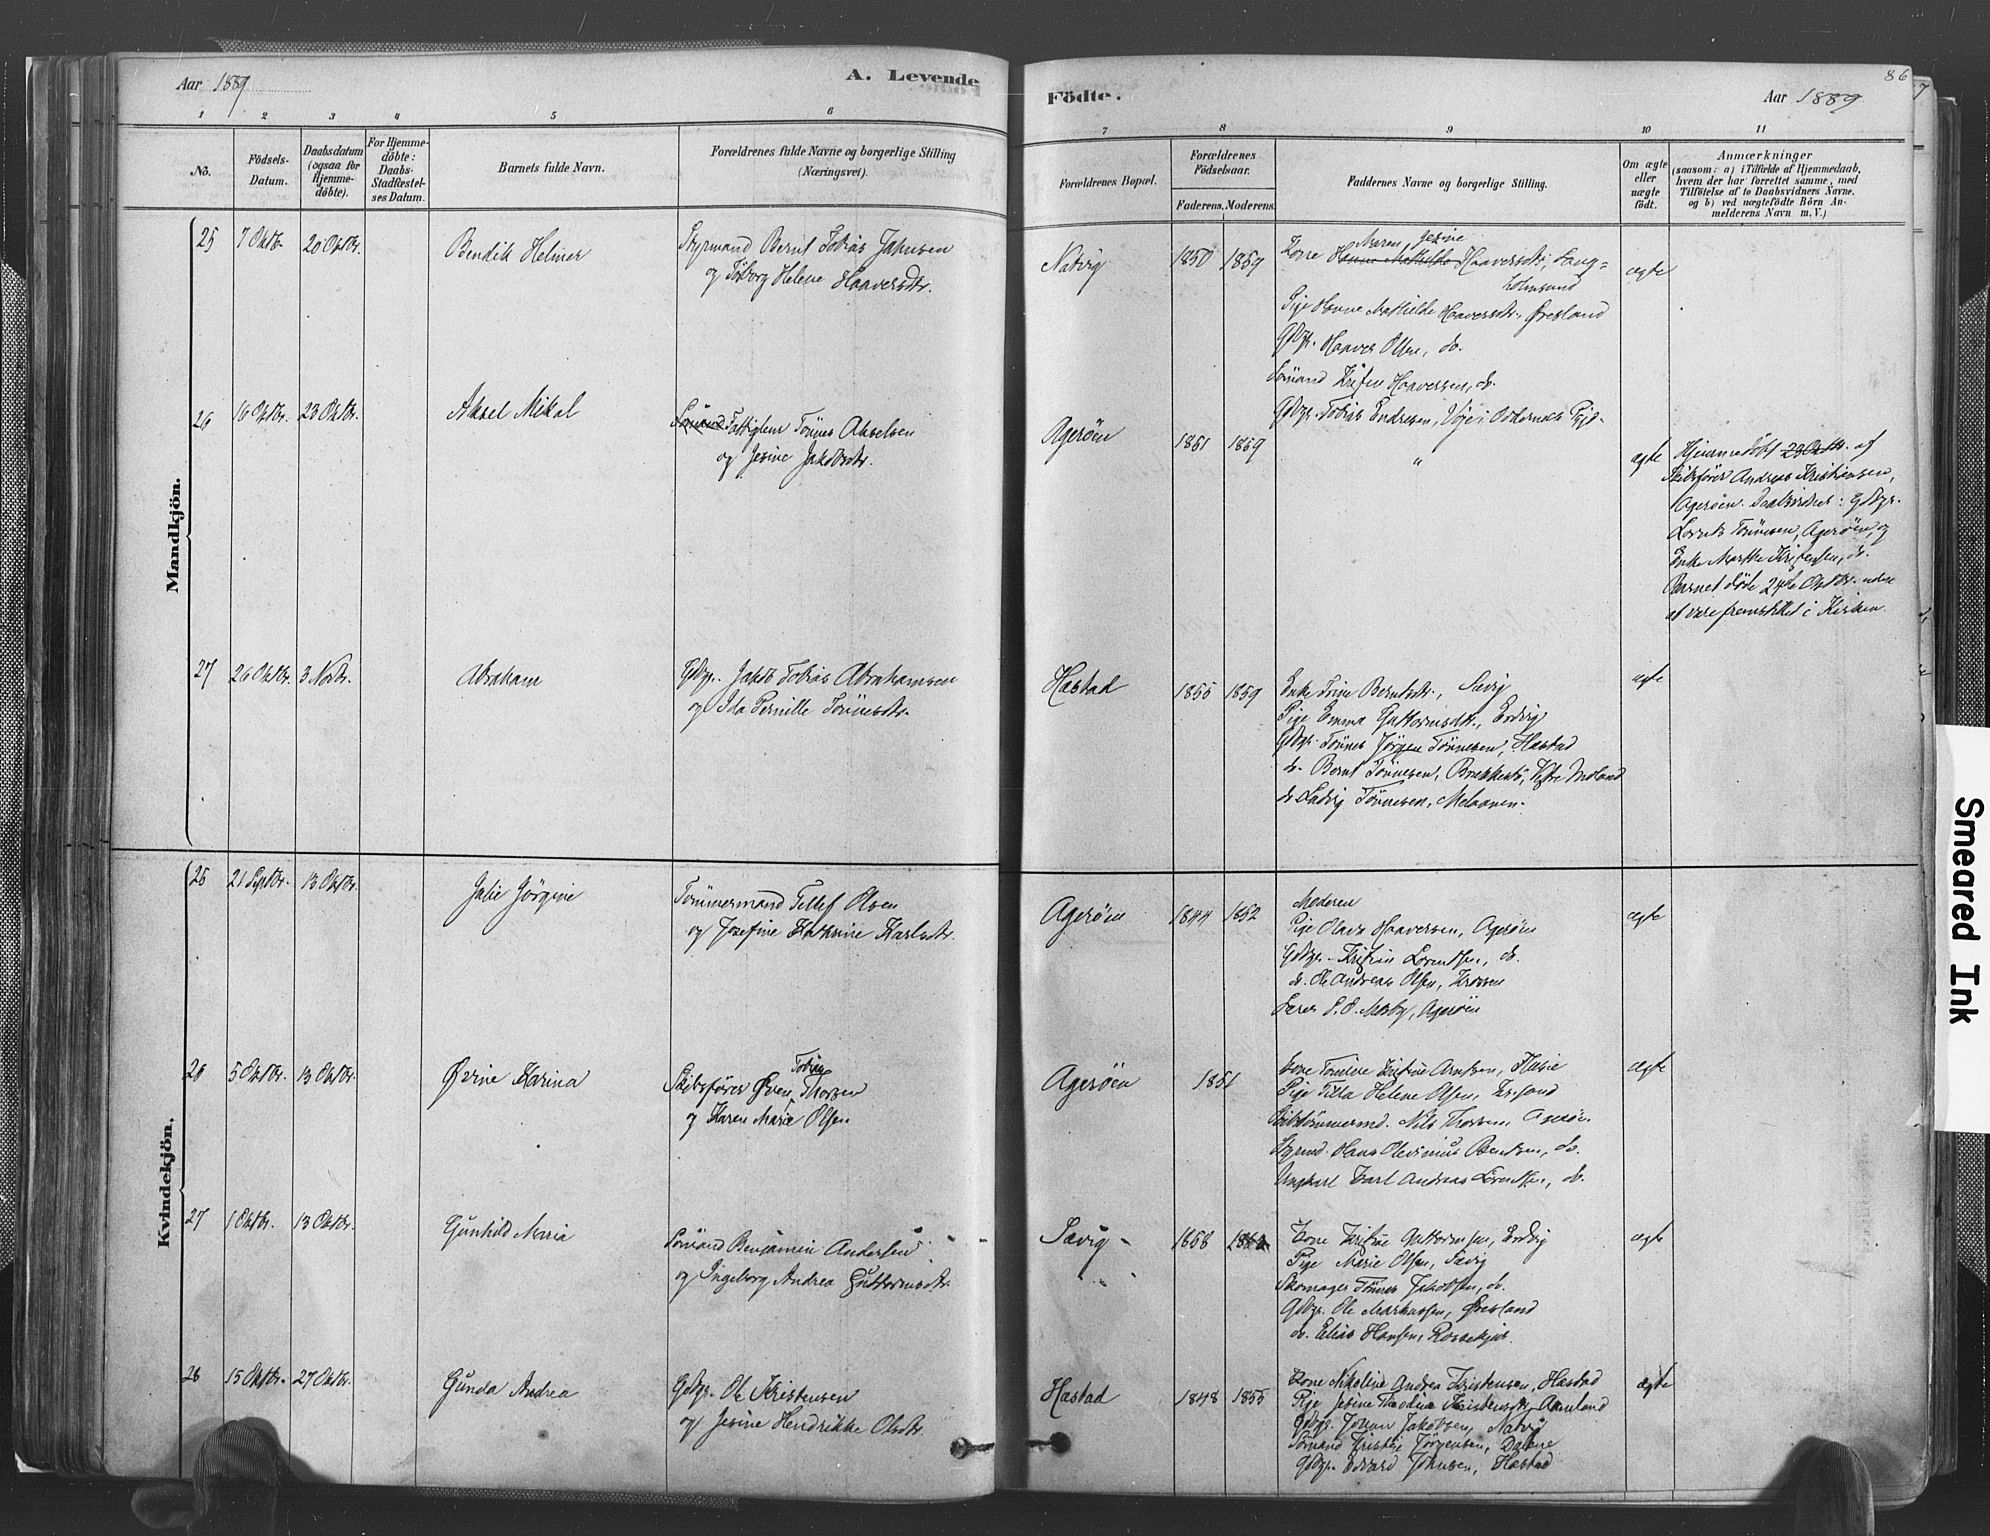 Aar 1889
A. Levende
Födte.
Aar 1889
86
7
1 2 3 4 5 6
7 8 9 10 11
No.
Födsels-
Datum.
Daabsdatum
(ogsaa for
Hjemme-
döbte).
For Hjemme-
döbte:
Daabs-
Stadfæstel-
ses Datum.
Barnets fulde Navn.
Forældrenes fulde Navne og borgerlige Stilling
(Næringsvei).
Forældrenes Bopæl.
Forældrenes
Födselsaar.
Faderens. Moderens.
Faddernes Navne og borgerlige Stilling.
Om ægte
eller
uægte
födt.
Anmærkninger
(saasom: a) i Tilfælde af Hjemmedaab,
hvem der har forrettet samme, med
Tilföielse af to Daabsvidners Navne.
og b) ved uægtefödte Börn An-
melderens Navn m. V.)
Mandkjön.
25 7 Oktbr. 20 Oktbr.
Bendik Helmer
Styrmand Bernt Tobias Jahnsen
og Helene Haaversdtr.
Natvig
1850 1859
Kone Hanne Mathilde Haaversdtr., Lang=
Maren Jesine
holmsund
Pige Hanne Mathilde Haaversdtr., Øresland
Gbgr. Haaver Olsen, do.
Sömand Haaversen, do.
Gbgr. Tobias Endresen,
ægte
26 16 Oktbr. 23 Oktbr.
Aksel Mikal
Sömand Fattiglem Tönnes Akselsen
og Jesine Jakobsdtr.
Agerøen
1851 1859
"
ægte
Hjemmedöbt 23 Oktbr. af
Skibsfører Andreas Kristiansen,
Agerøen. Daabsvidner: Gbgr.
Lorents Tönnesen, Agerøen, og
Enke Marthe do.
Barnet döde 24de Oktbr. uden
at være fremstillet i Kirken.
27 26 Oktbr. 3 Novbr.
Abraham
Gbgr. Jakob Tobias Abrahamsen
og Ida Pernille Tönnesdtr.
Hæstad
1855 1859
Enke Trine Berntsdtr., Sævig
Pige Emma Guttormsdtr.,
Gbgr. Tönnes Jörgen Tönnesen, Hæstad
do. Bernt Tönnesen, Brekkestö, Vestre Moland
do. Ludvig Tönnesen,
ægte
Kvindekjön.
25 21 Septbr. 13 Oktbr.
Julie Jörgine
Tömmermand Tellef Olsen
og Josefine Kathrine Karlsdtr.
Agerøen
1844 1852
Moderen
Pige Haaversen, Agerøen
Gbgr. Lorentsen, do.
do. Ole Andreas Olsen,
Mosby, Agerøen
ægte
26 5 Oktbr. 13 Oktbr.
Øvine Karina
Skibsfører Øven Thorsen
Tobias
og Karen Marie Olsen
Agerøen
1851
Kone
Pige Helene Olsen,
Skibstömmermd. Nils Thorsen, Agerøen
Styrmd. Hans Olevinius Bentsen, do.
Ungkarl Karl Andreas Lorentsen, do.
ægte
27 1 Oktbr. 13 Oktbr.
Gunhild Maria
Sömand Benjamin Andersen
og Ingeborg Andrea Guttormsdtr.
Sævig
1858
Kone Guttormsen,
Pige Marie Olsen, Sævig
Skomager Tönnes Jakobsen, do.
Gbgr. Ole Markussen, Øresland
do. Elias Hansen,
ægte
28 15 Oktbr. 27 Oktbr.
Gunda Andrea
Gbgr. Ole Kristensen
og Jesine Hendrikke Olsdtr.
Hæstad
1848 1855
Kone Nikoline Andrea Kristensen, Hæstad
Pige Jesine Kristensen,
Gbgr. Johan Jakobsen, Natvig
Sömand Jörgensen, Dalene
Gbgr. Edvard Johnsen, Hæstad
ægte
Smeared Ink